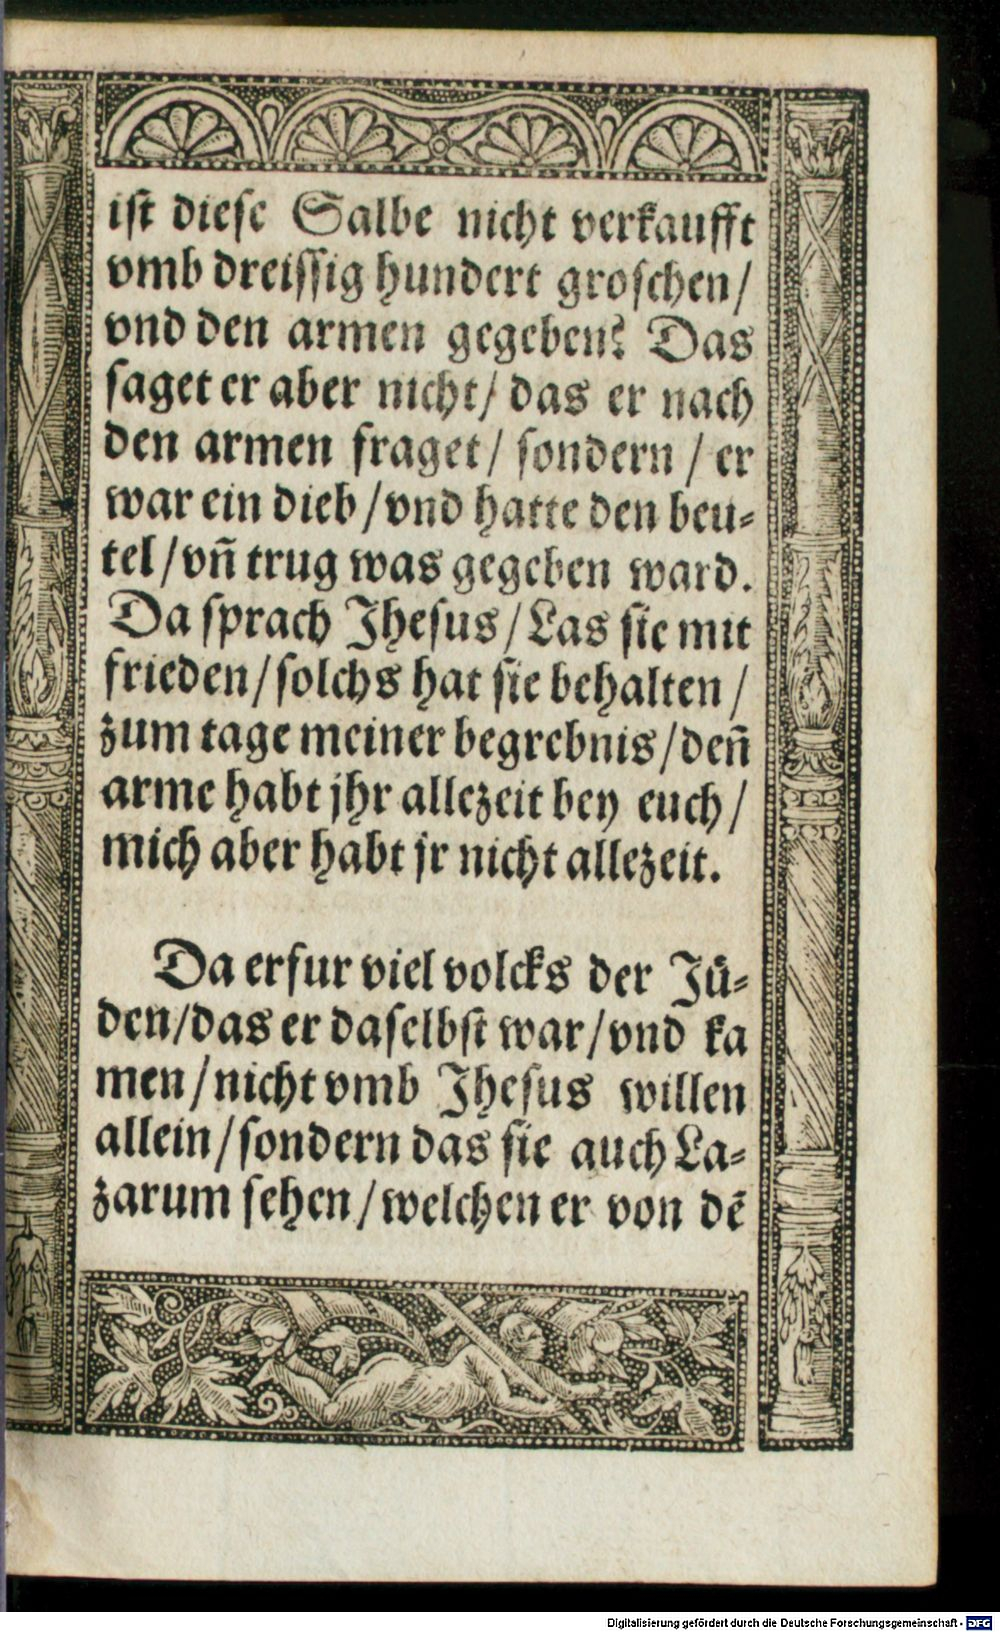 ist diese Salbe nicht verkaufft
vmb dreissig hundert groschen/
vnd den armen gegeben? Das
saget er aber nicht/ das er nach
den armen fraget/ sondern / er
war ein dieb/vnd hatte den beu-
tel/vn̄ trug was gegeben ward.
Da sprach Jhesus/Las sie mit
frieden/solchs hat sie behalten/
zum tage meiner begrebnis/den̄
arme habt jhr allezeit bey euch/
mich aber habt jr nicht allezeit.
Da erfur viel volcks der Jü-
den/das er daselbst war/vnd ka
men/nicht vmb Jhesus willen
allein/sondern das sie auch La-
zarum sehen/welchen er von dē
Digitalisierung gefördert durch die Deutsche Forschungsgemeinschaft - DFG